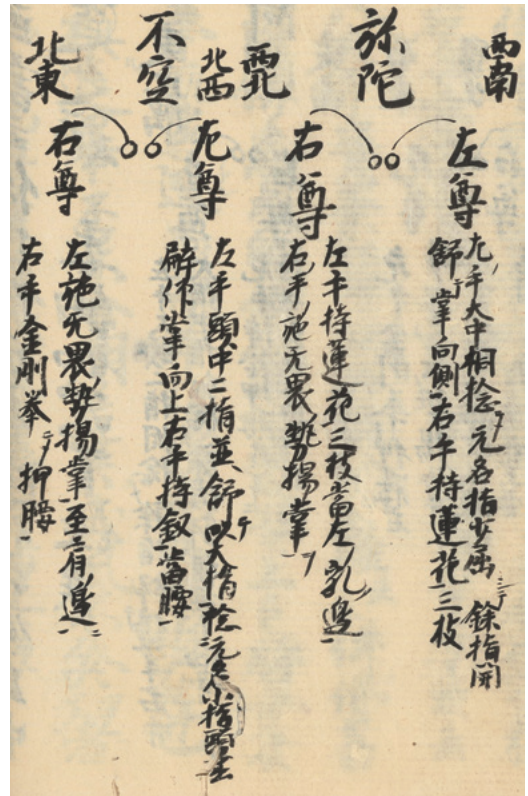 西南
弥陀
西北
北西
不空
北東
左尊
左手大中相捻无名指少屈餘指開
舒掌向側右手持蓮花三枝
右尊
左手持蓮花三枝當左乳邊
右手施无畏勢揚掌
左尊
左手頭中二指並舒以大指捻无名小指頭
仰掌向上右手持釼當腰
右尊
左施无畏勢揚掌至肩邊
右手金剛拳押腰